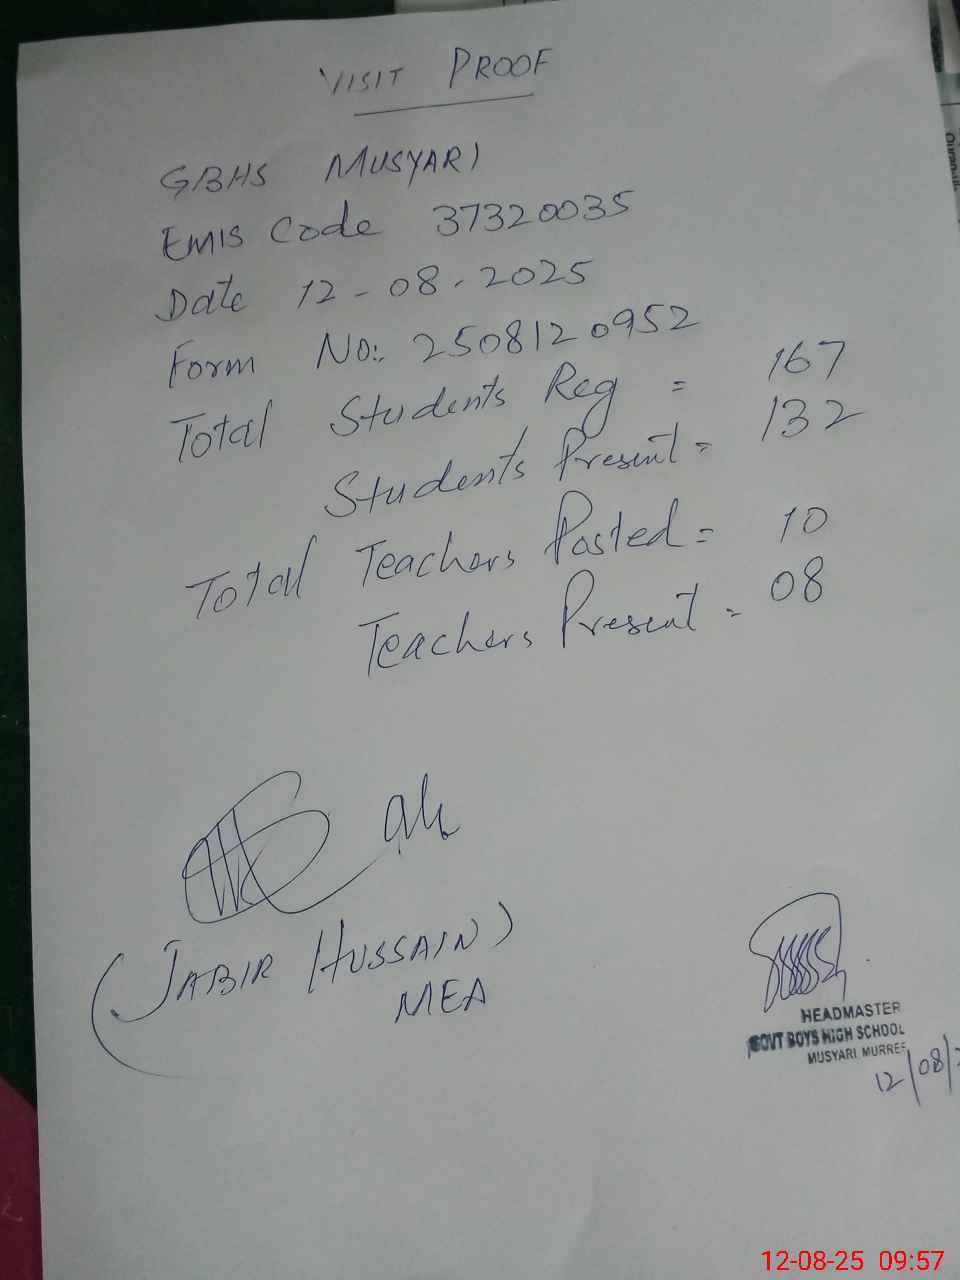 VISIT PROOF
GBHS MUSYARI
EMIS Code 37320035
Date 12-08-2025
Form No: 2508120952
Total Students Reg = 167
Students Present = 132
Total Teachers Posted = 10
Teachers Present = 08
(JABIR HUSSAIN)
MEA
HEADMASTER
GOVT BOYS HIGH SCHOOL
MUSYARI MURREE
12/08/
12-08-25 09:57